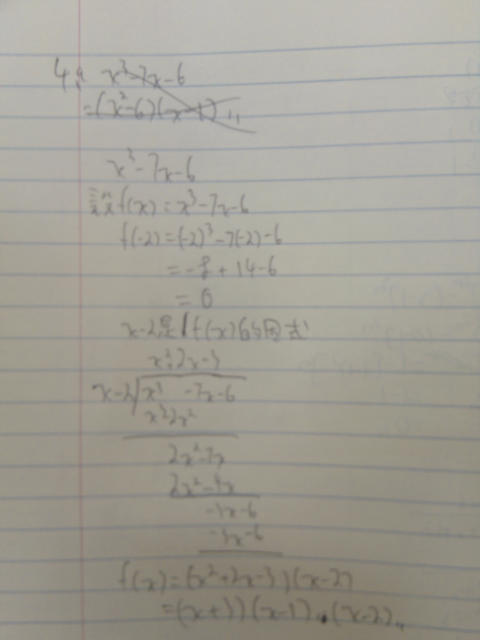 4a x³-7x-6
=(x²-6)(x-1)
x³-7x-6
設 f(x)=x³-7x-6
f(-2)=(-2)³-7(-2)-6
=-8+14-6
=0
x-2是f(x)的因式
x²+2x-3
x-2 x³ -7x-6
x³-2x²
2x²-7x
2x²-4x
-3x-6
-3x-6
f(x)=(x²+2x-3)(x-2)
=(x+3)(x-1)(x-2)